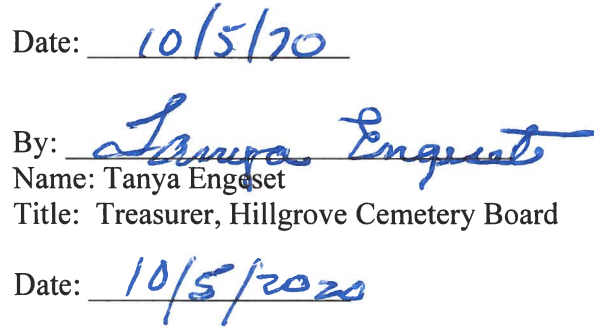 Date: 10/5/20
By: Tanya Engeset
Name: Tanya Engeset
Title: Treasurer, Hillgrove Cemetery Board
Date: 10/5/2020